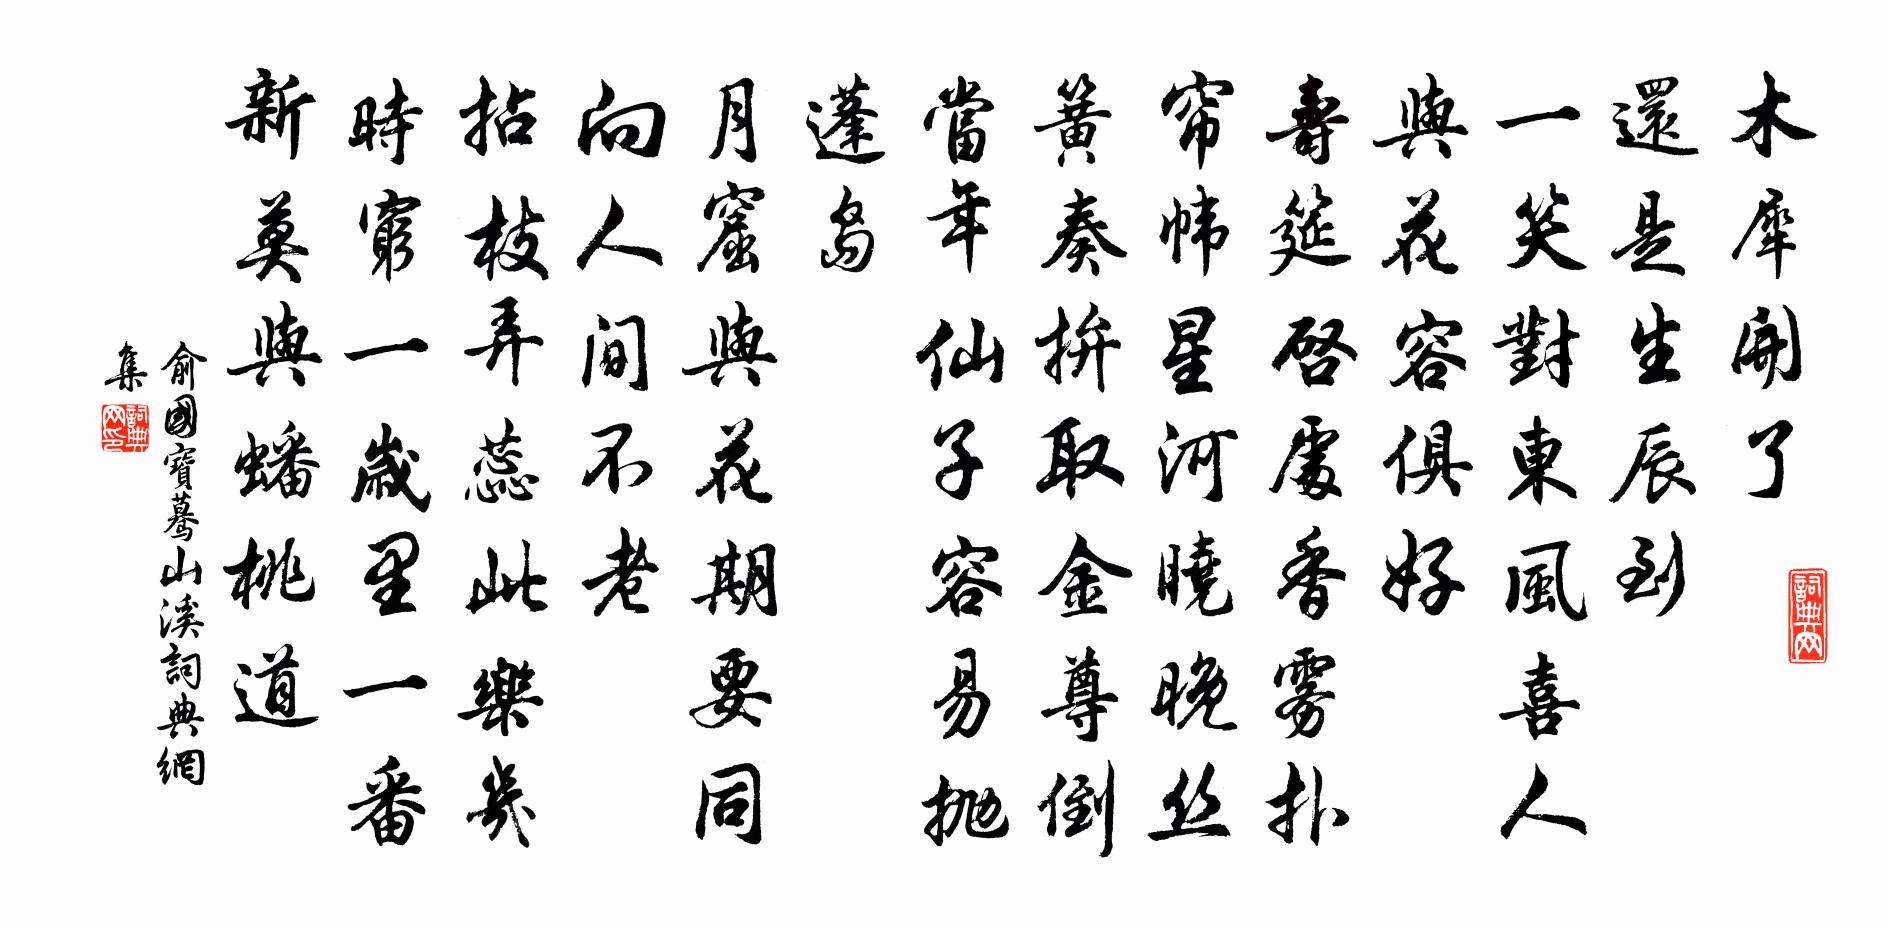 木犀開了
還是生辰到
一笑對東風喜人
與花容俱好
壽筵啓處香雾扑
帘幃星河曉晚丝
簧奏拚取金尊倒
當年仙子容易抛
蓬島
月窟與花期要同
向人間不老
拈枝弄蕊此樂幾
時窮一歲里一番
新莫與蟠桃道
俞國寶驀山溪詞典網
集
詞典网
詞典网印